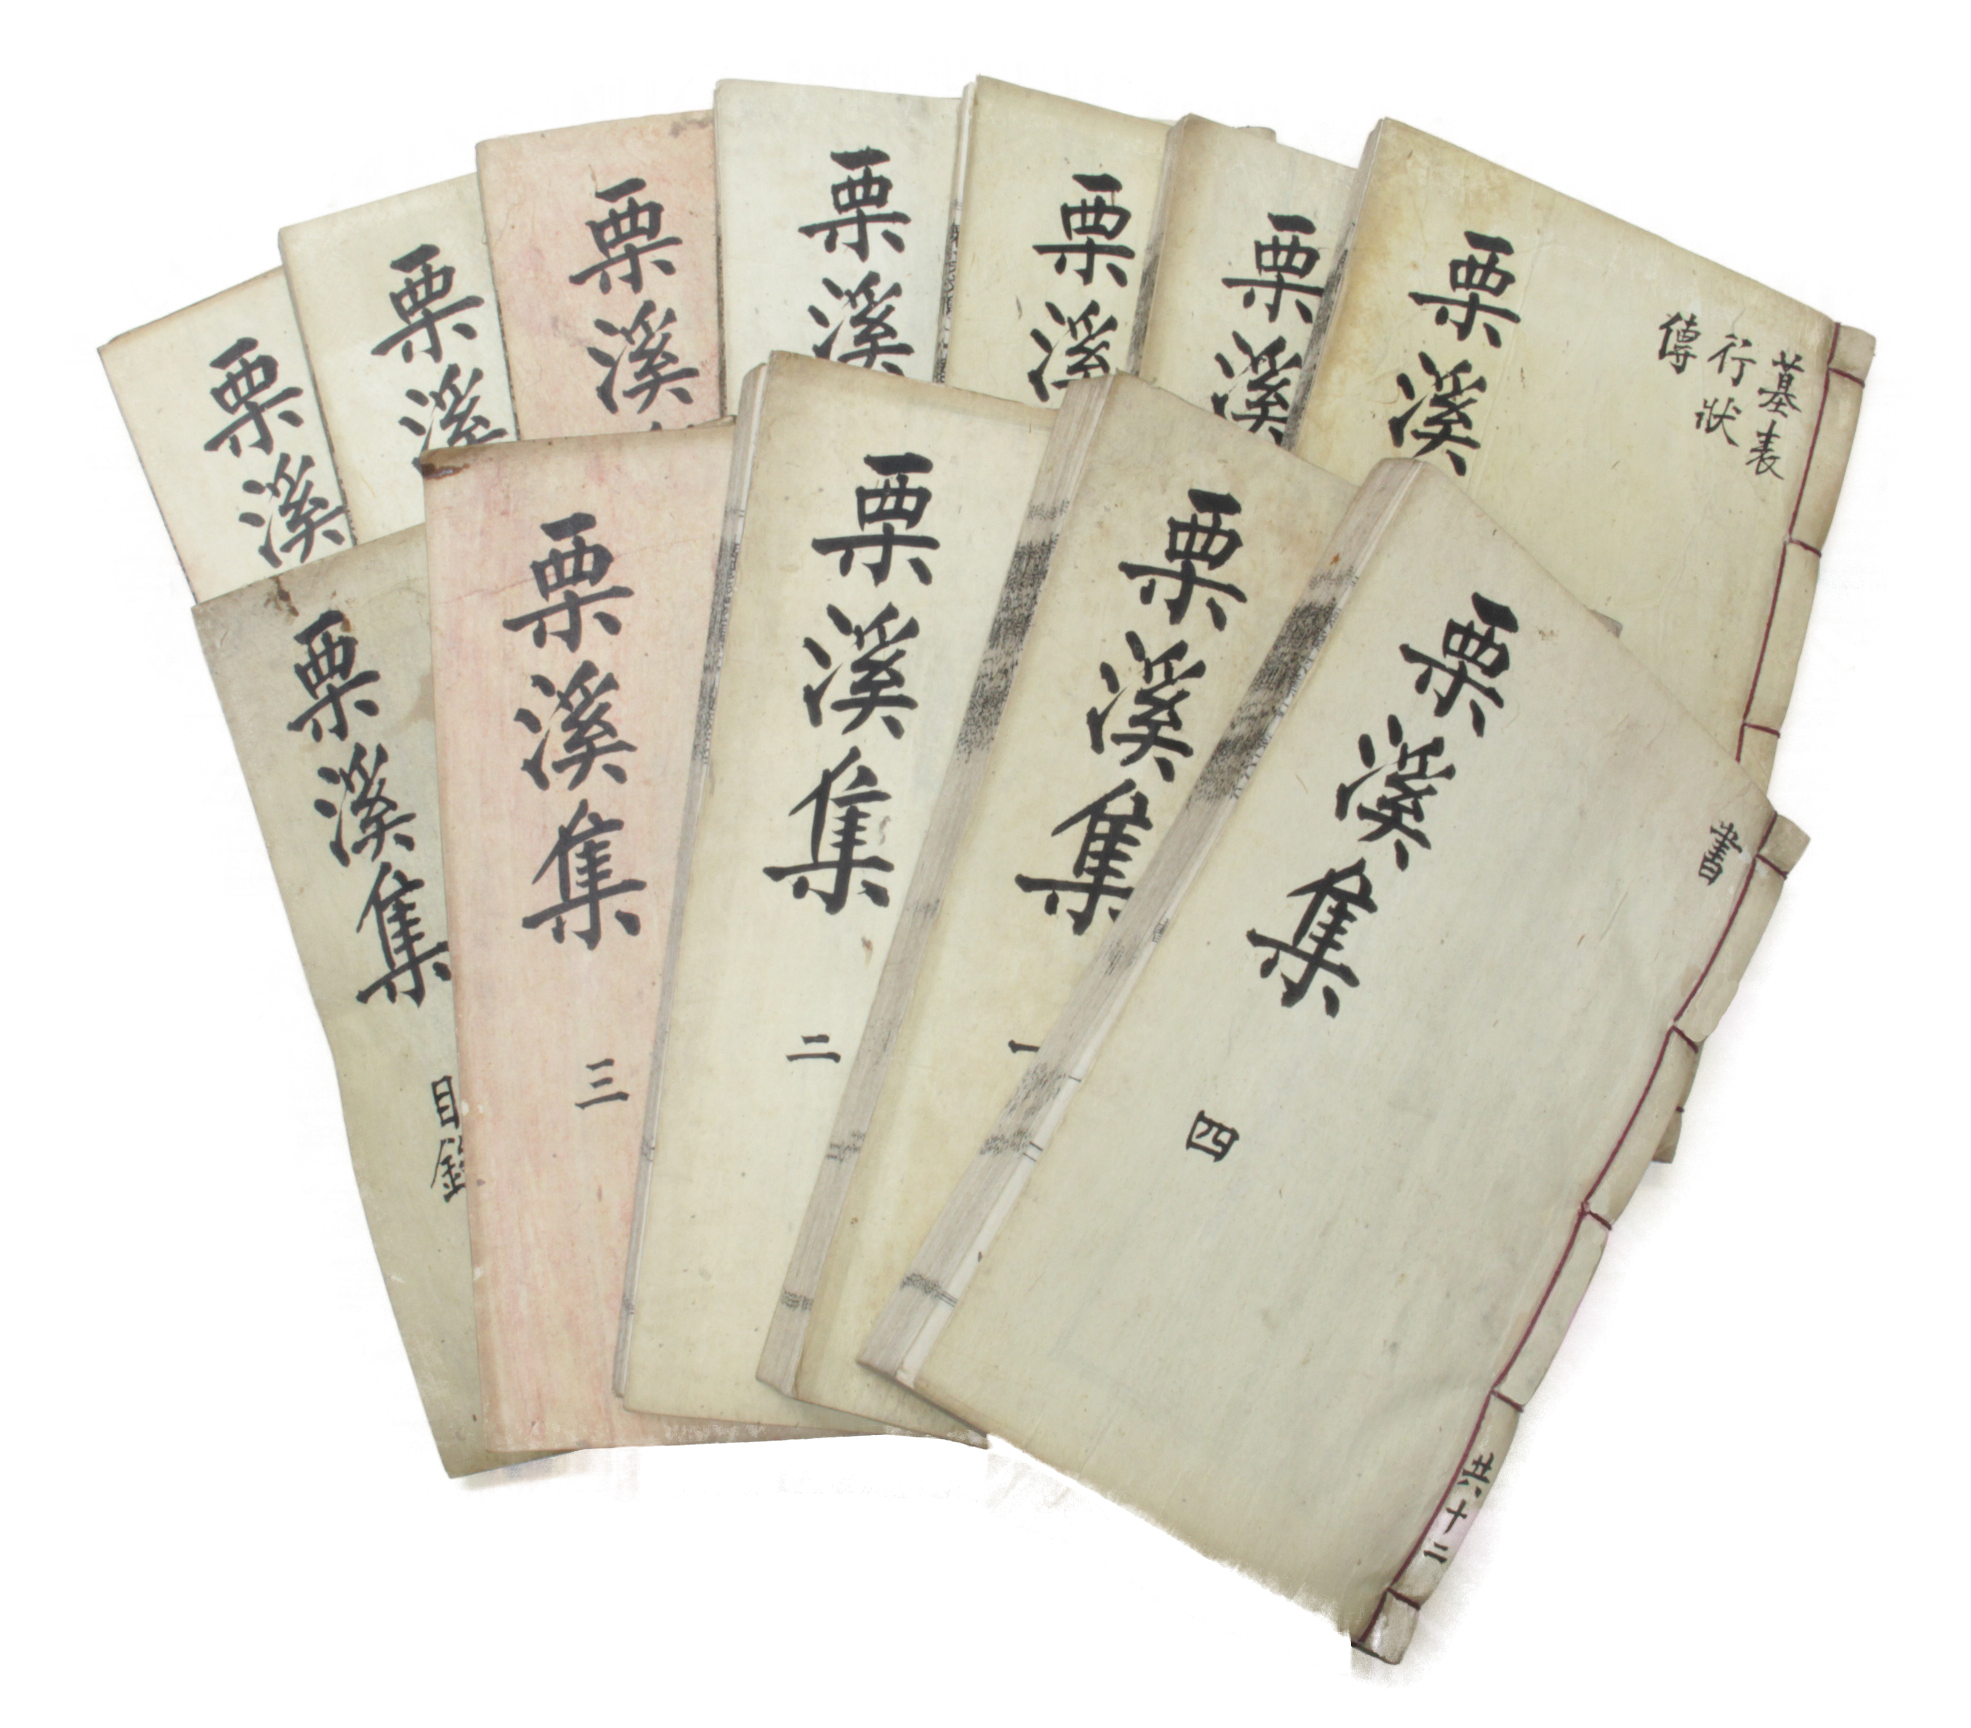 栗溪
栗溪
栗溪
栗溪
栗溪
栗溪
墓表
行狀
傳
栗溪
栗溪集
目錄
栗溪集
三
栗溪集
二
栗溪集
一
書
栗溪集
四
共十二